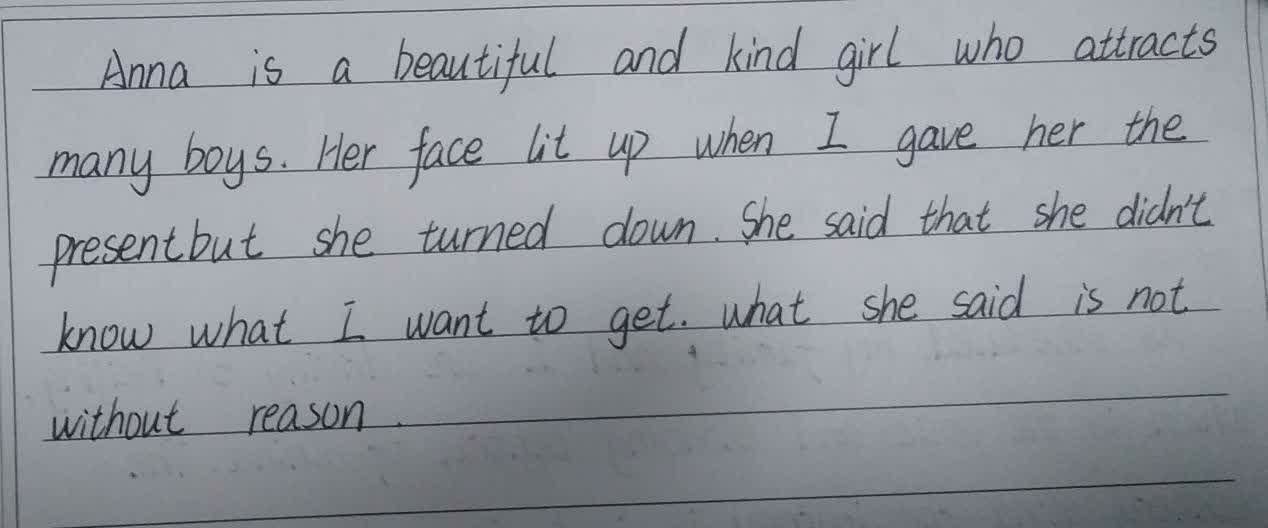 Anna is a beautiful and kind girl who attracts
many boys. Her face lit up when I gave her the
present but she turned down. She said that she didn't
know what I want to get. what she said is not
without reason.